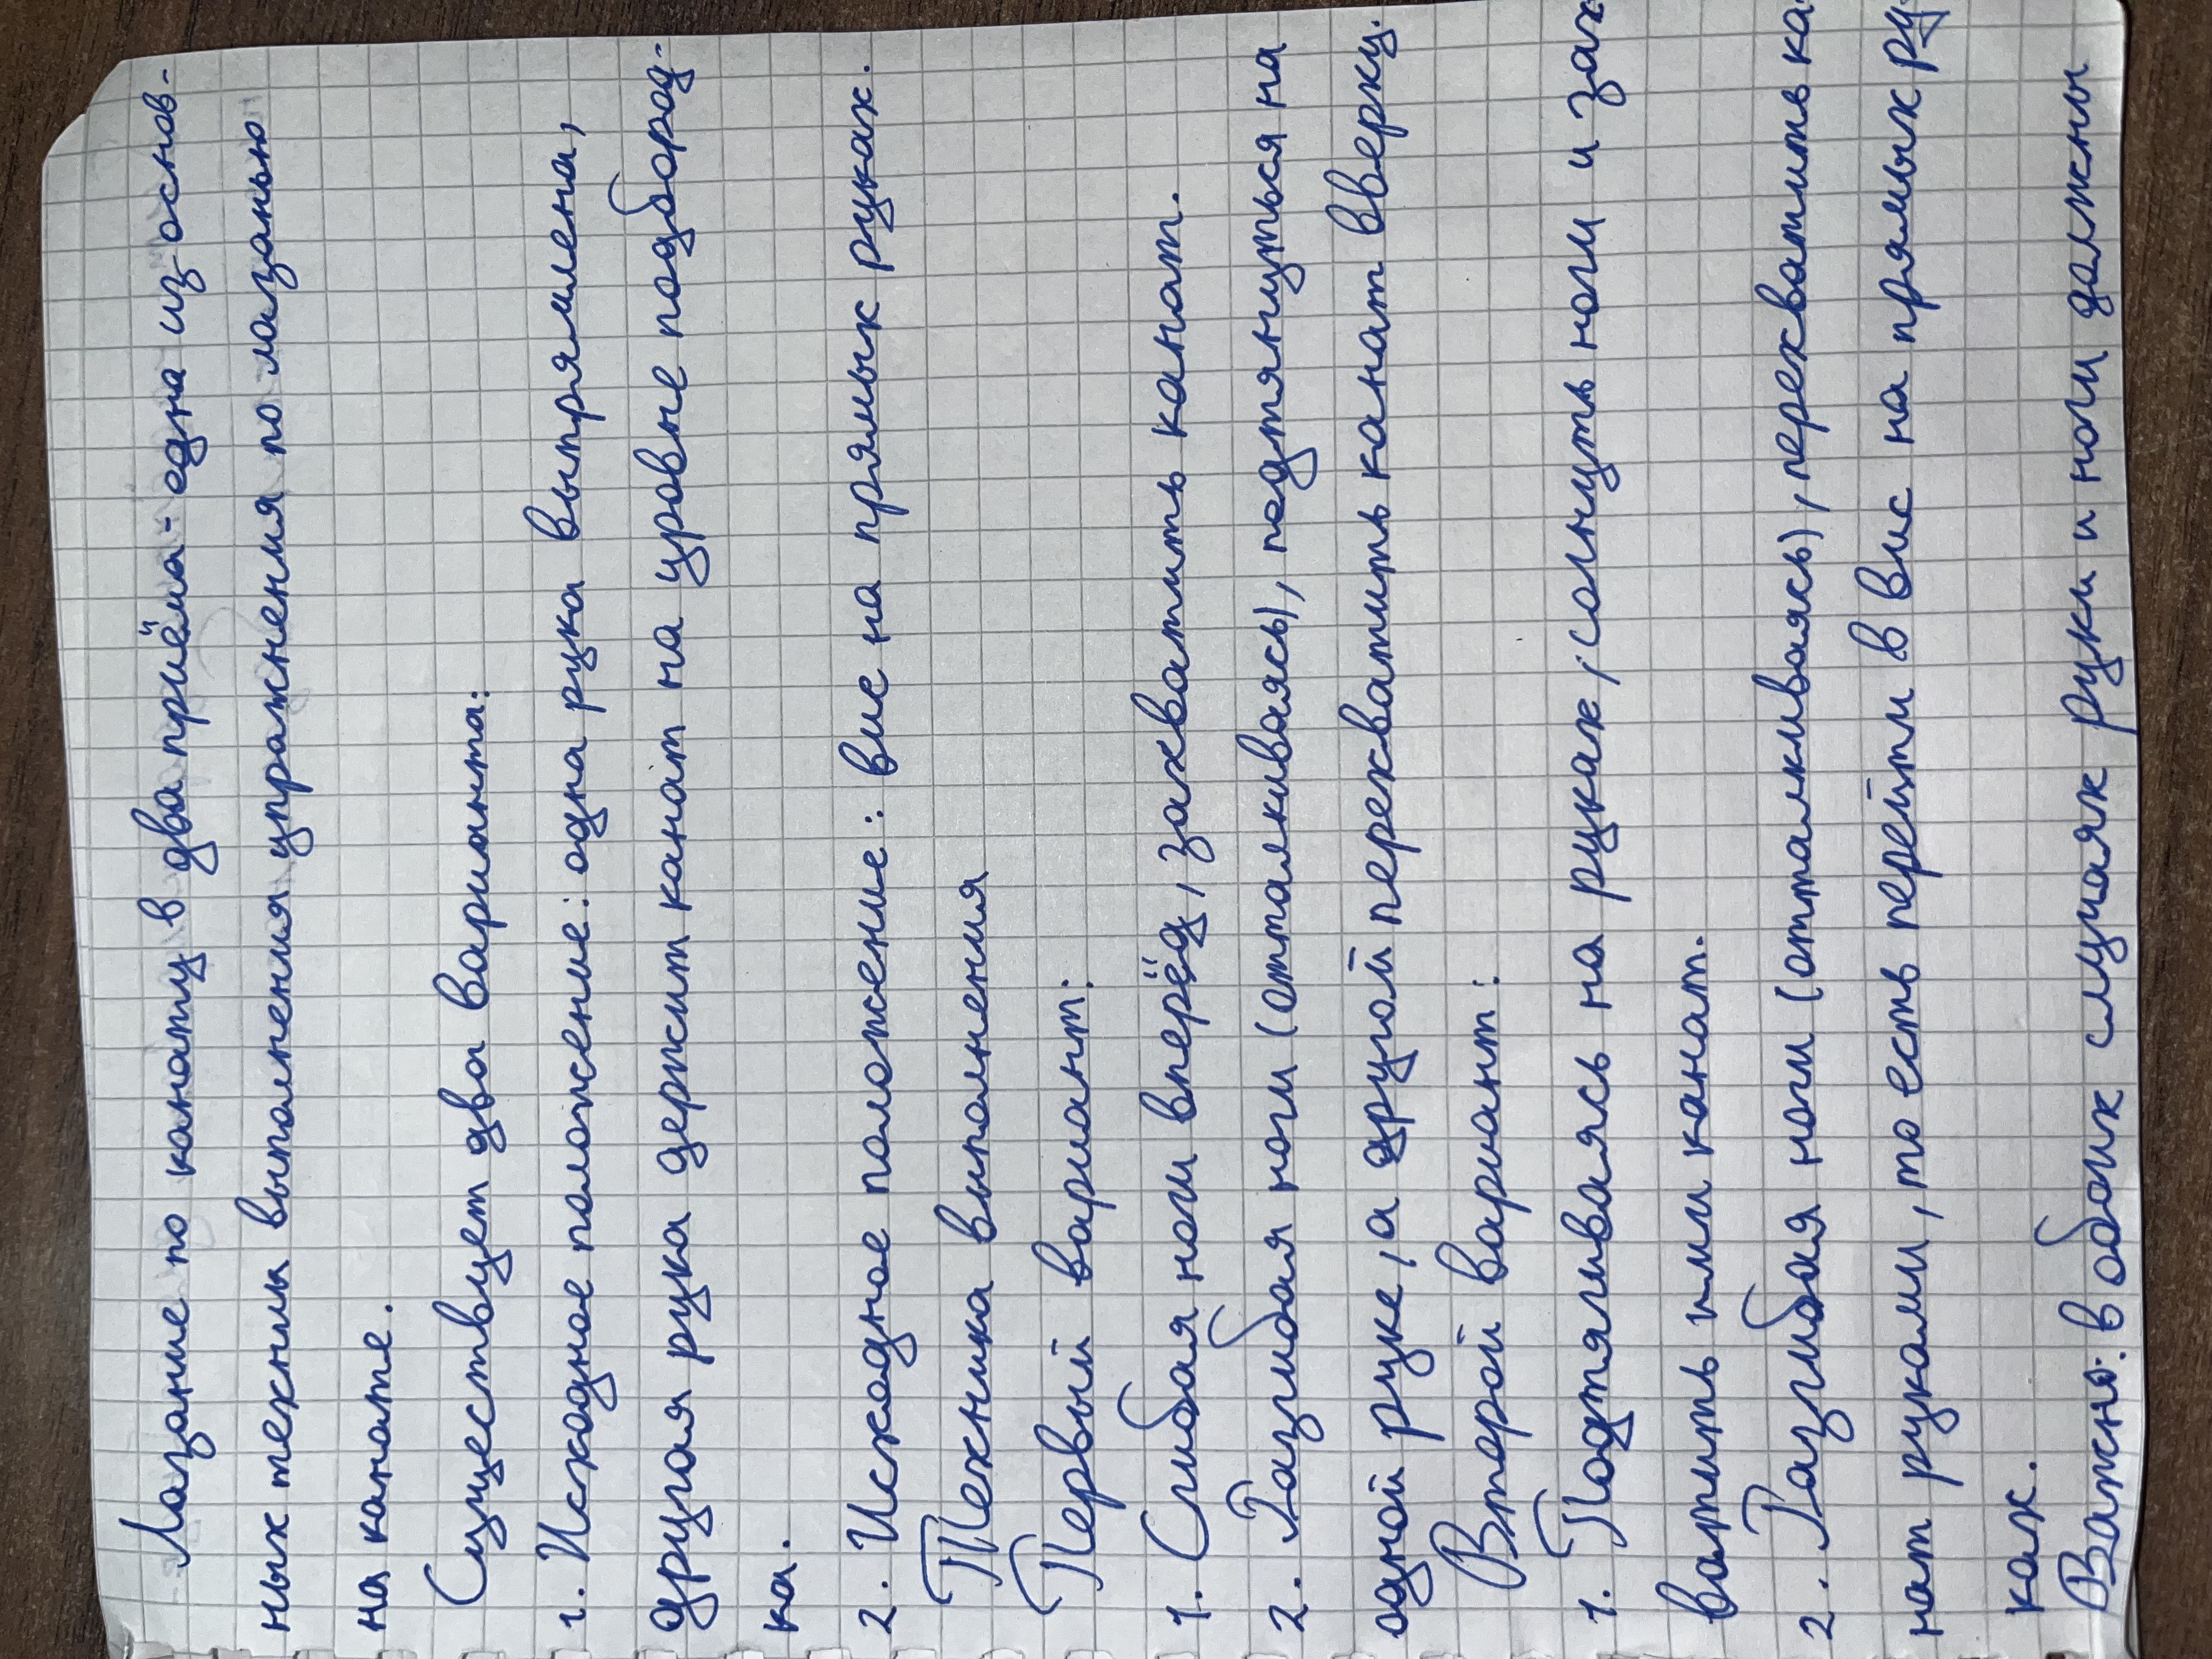 Лазание по канату в два приёма - една из основ-
ных техники выполнения упражнения по лазанью
на канате.
Существует два варианта:
1. Исходное положение: одна рука выпрямлена,
другая рука держит канат на уровне подбород-
ка.
2. Исходное положение: вис на прямых руках.
Техника выполнения
Первый вариант:
1. Сгибая ноги вперёд, захватить канат.
2. Разгибая ноги (отталкиваясь), подтянуться на
одной руке, а другой перехватить канат вверху.
Второй вариант:
1. Подтягиваясь на руках, согнуть ноги и зах
ватить ими канат.
2. Разгибая ноги (отталкиваясь), перехватить ка-
нат руками, то есть перейти в вис на прямых ру-
ках.
Важно: в обоих случаях руки и ноги должны